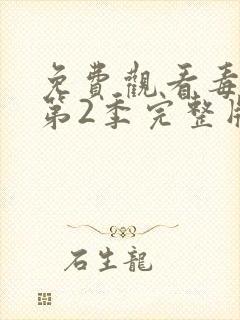 免費觀看毒
第2季完整版
石生龍